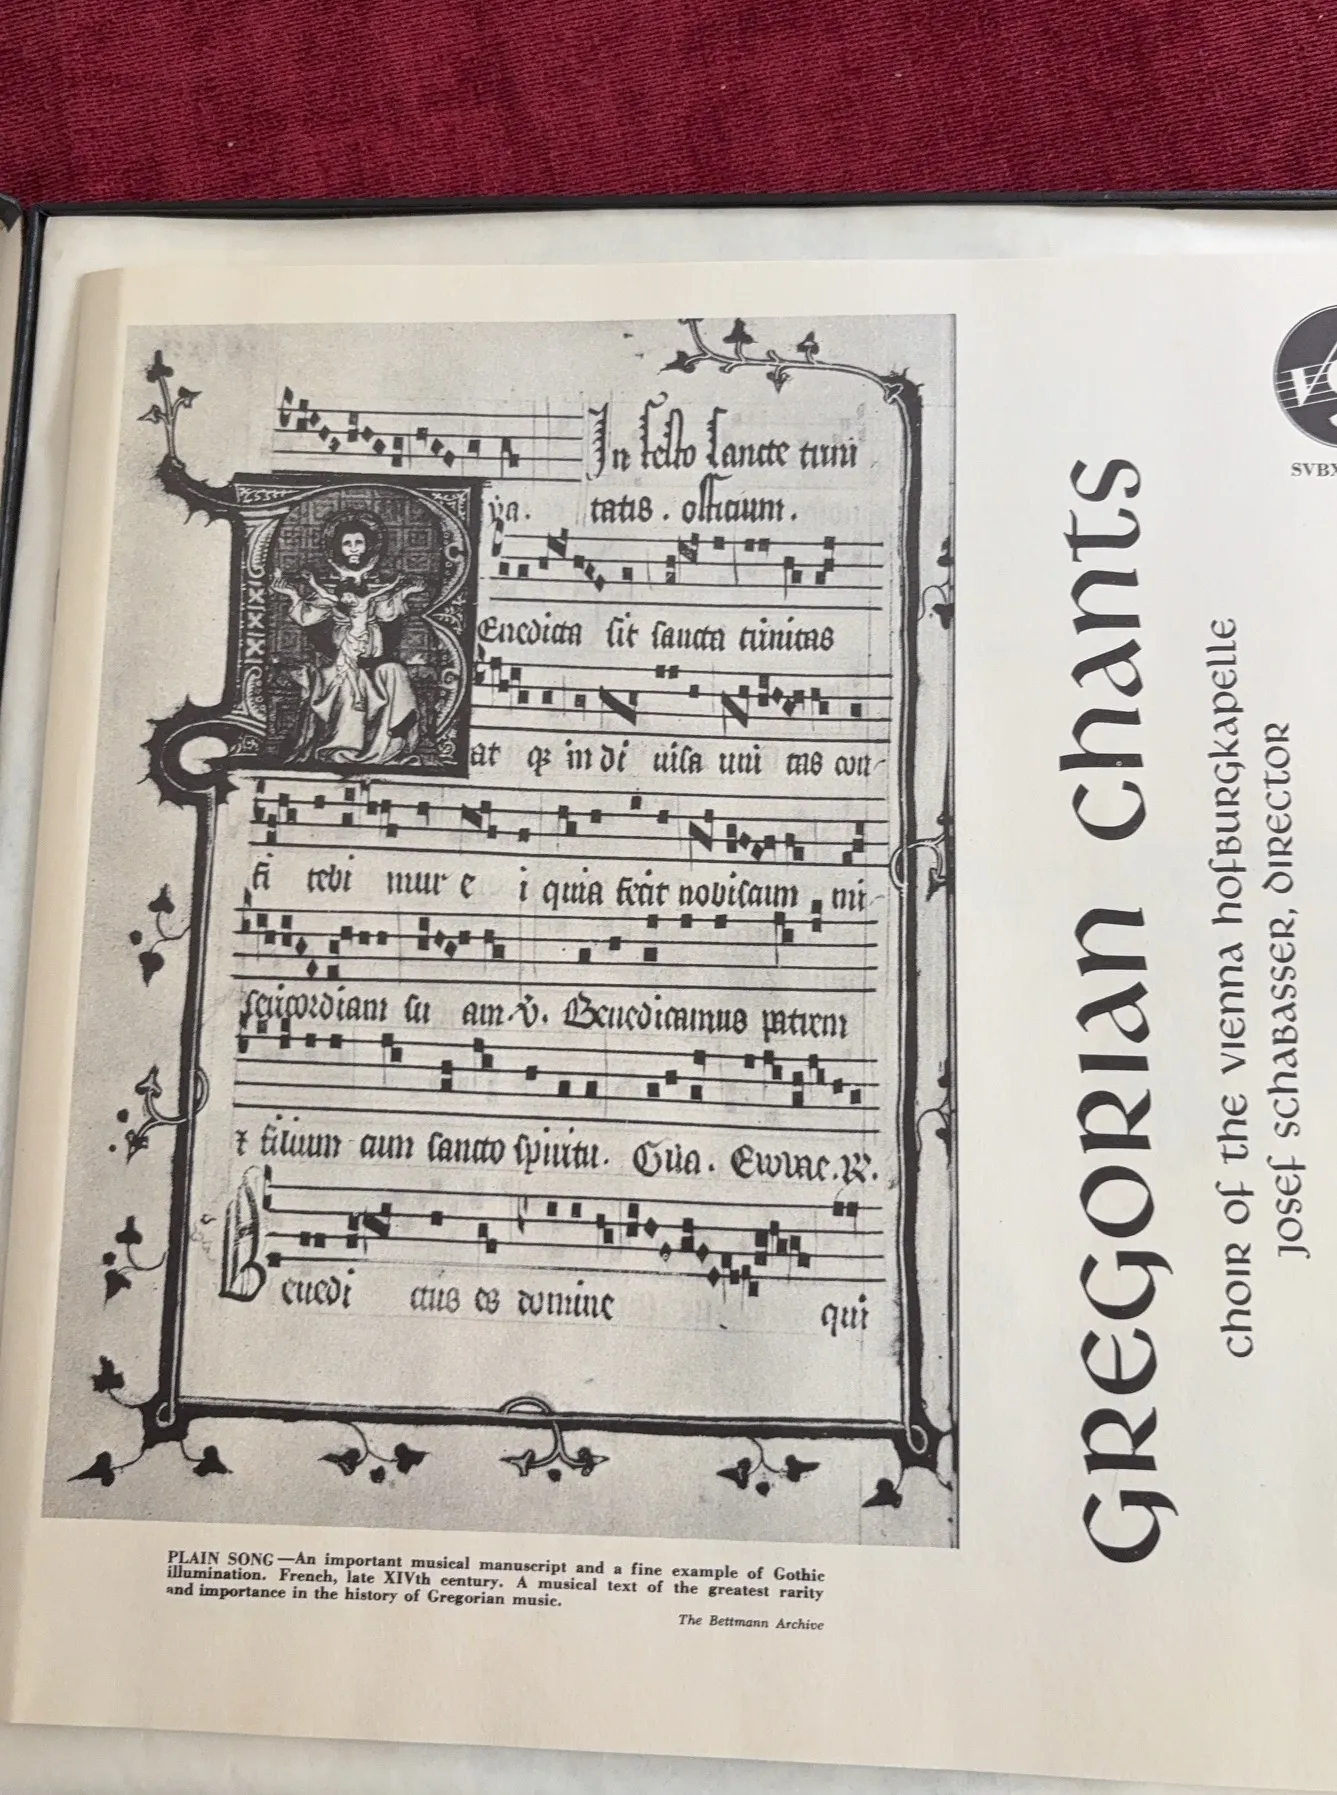 In festo sancte trini
ya. tatis. officium.
Enedicta sit sancta trinitas
at qz indi uisa uni tas con-
fi tebi mur e i quia fecit nobiscum mi-
sericordiam su am. V. Benedicamus patrem
⁊ filium cum sancto spiritu. Gła. Evovae. R.
Benedi ctus es domine qui
PLAIN SONG—An important musical manuscript and a fine example of Gothic
illumination. French, late XIVth century. A musical text of the greatest rarity
and importance in the history of Gregorian music.
The Bettmann Archive
GREGORIAN CHANTS
CHOIR OF THE VIENNA HOFBURGKAPELLE
JOSEF SCHABASSER, DIRECTOR
SVBX